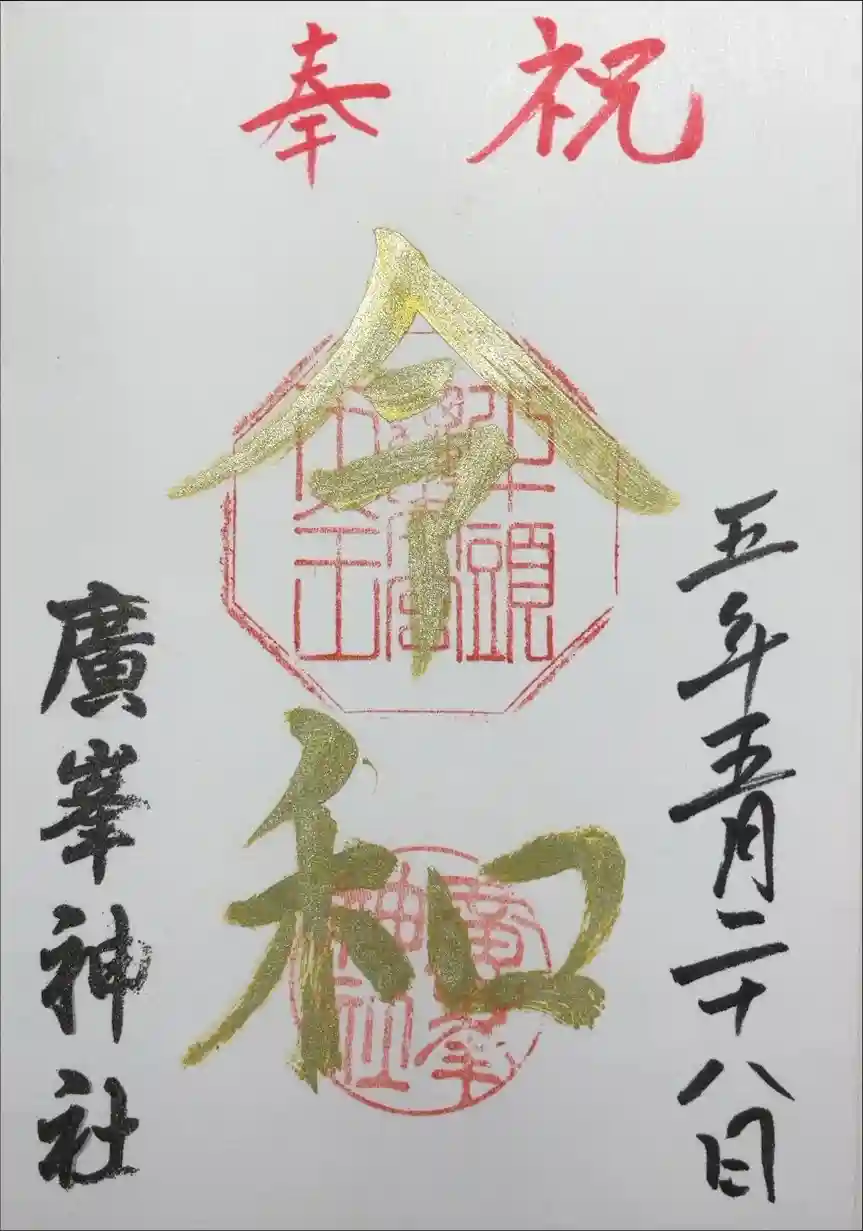 奉祝
五年五月二十八日
令和
牛頭
天王
廣峯
神社
廣峯神社